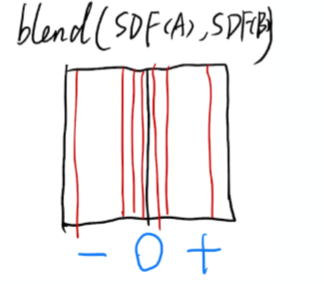 blend(SDF(A),SDF(B))
- 0 +